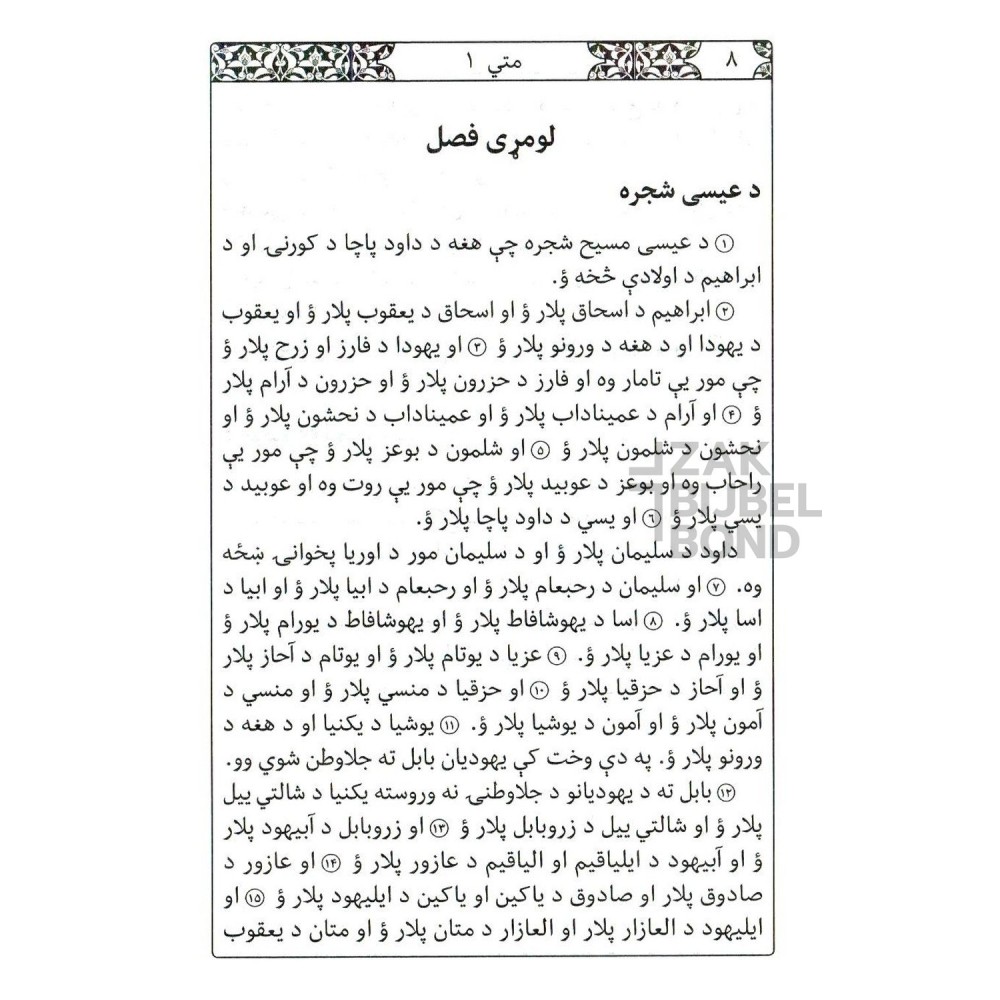 ۸
متي ۱
لومړی فصل
د عیسی شجره
① د عیسی مسیح شجره چې هغه د داود پاچا د کورنۍ او د
ابراهیم د اولادې څخه ؤ.
② ابراهیم د اسحاق پلار ؤ او اسحاق د یعقوب پلار ؤ او یعقوب
د یهودا او د هغه د ورونو پلار ؤ ③ او یهودا د فارز او زرح پلار ؤ
چې مور یې تامار وه او فارز د حزرون پلار ؤ او حزرون د آرام پلار
ؤ ④ او آرام د عمیناداب پلار ؤ او عمیناداب د نحشون پلار ؤ او
نحشون د شلمون پلار ؤ ⑤ او شلمون د بوعز پلار ؤ چې مور یې
راحاب وه او بوعز د عوبید پلار ؤ چې مور یې روت وه او عوبید د
یسي پلار ؤ ⑥ او یسي د داود پاچا پلار ؤ.
داود د سلیمان پلار ؤ او د سلیمان مور د اوریا پخوانۍ ښځه
وه. ⑦ او سلیمان د رحبعام پلار ؤ او رحبعام د ابیا پلار ؤ او ابیا د
اسا پلار ؤ. ⑧ اسا د یهوشافاط پلار ؤ او یهوشافاط د یورام پلار ؤ
او یورام د عزیا پلار ؤ. ⑨ عزیا د یوتام پلار ؤ او یوتام د آحاز پلار
ؤ او آحاز د حزقیا پلار ؤ ⑩ او حزقیا د منسي پلار ؤ او منسي د
آمون پلار ؤ او آمون د یوشیا پلار ؤ. ⑪ یوشیا د یکنیا او د هغه د
ورونو پلار ؤ. په دې وخت کې یهودیان بابل ته جلاوطن شوي وو.
⑫ بابل ته د یهودیانو د جلاوطنۍ نه وروسته یکنیا د شالتي ییل
پلار ؤ او شالتي ییل د زروبابل پلار ؤ ⑬ او زروبابل د آبیهود پلار
ؤ او آبیهود د ایلیاقیم او الیاقیم د عازور پلار ؤ ⑭ او عازور د
صادوق پلار او صادوق د یاکین او یاکین د ایلیهود پلار ؤ ⑮ او
ایلیهود د العازار پلار او العازار د متان پلار ؤ او متان د یعقوب
ZAK
BIJBEL
BOND